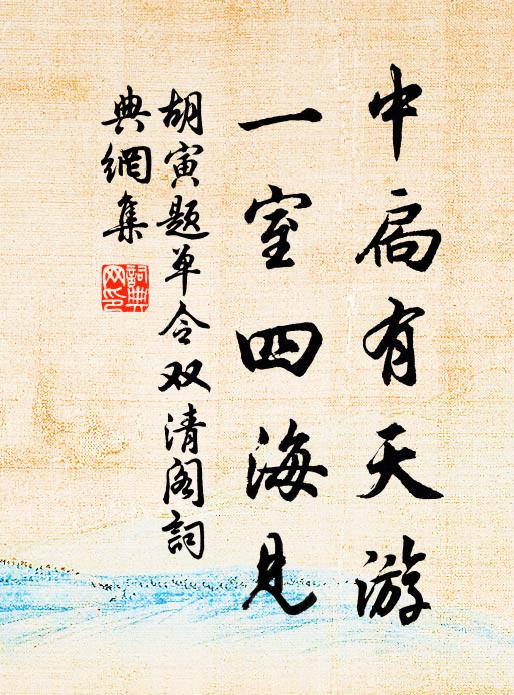 中扃有天游
一室四海见
胡寅题单令双清阁詞
典網集
詞典网印